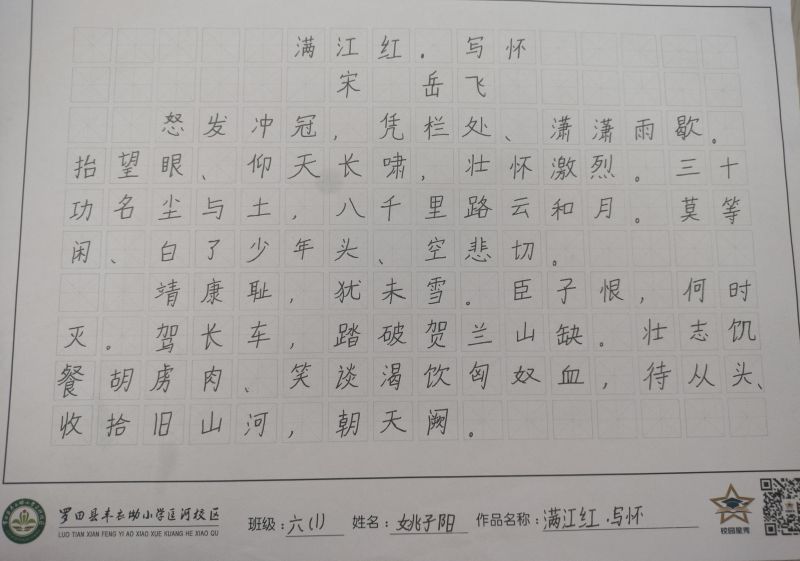 满江红.写怀
宋 岳飞
怒发冲冠,凭栏处、潇潇雨歇。
抬望眼、仰天长啸,壮怀激烈。三十
功名尘与土,八千里路云和月。莫等
闲、白了少年头、空悲切。
靖康耻,犹未雪。臣子恨,何时
灭。驾长车,踏破贺兰山缺。壮志饥
餐胡虏肉、笑谈渴饮匈奴血,待从头、
收拾旧山河,朝天阙。
罗田县丰衣坳小学匡河校区
LUO TIAN XIAN FENG YI AO XIAO XUE KUANG HE XIAO QU
班级:六(1) 姓名:姚子阳 作品名称:满江红.写怀
校园星秀